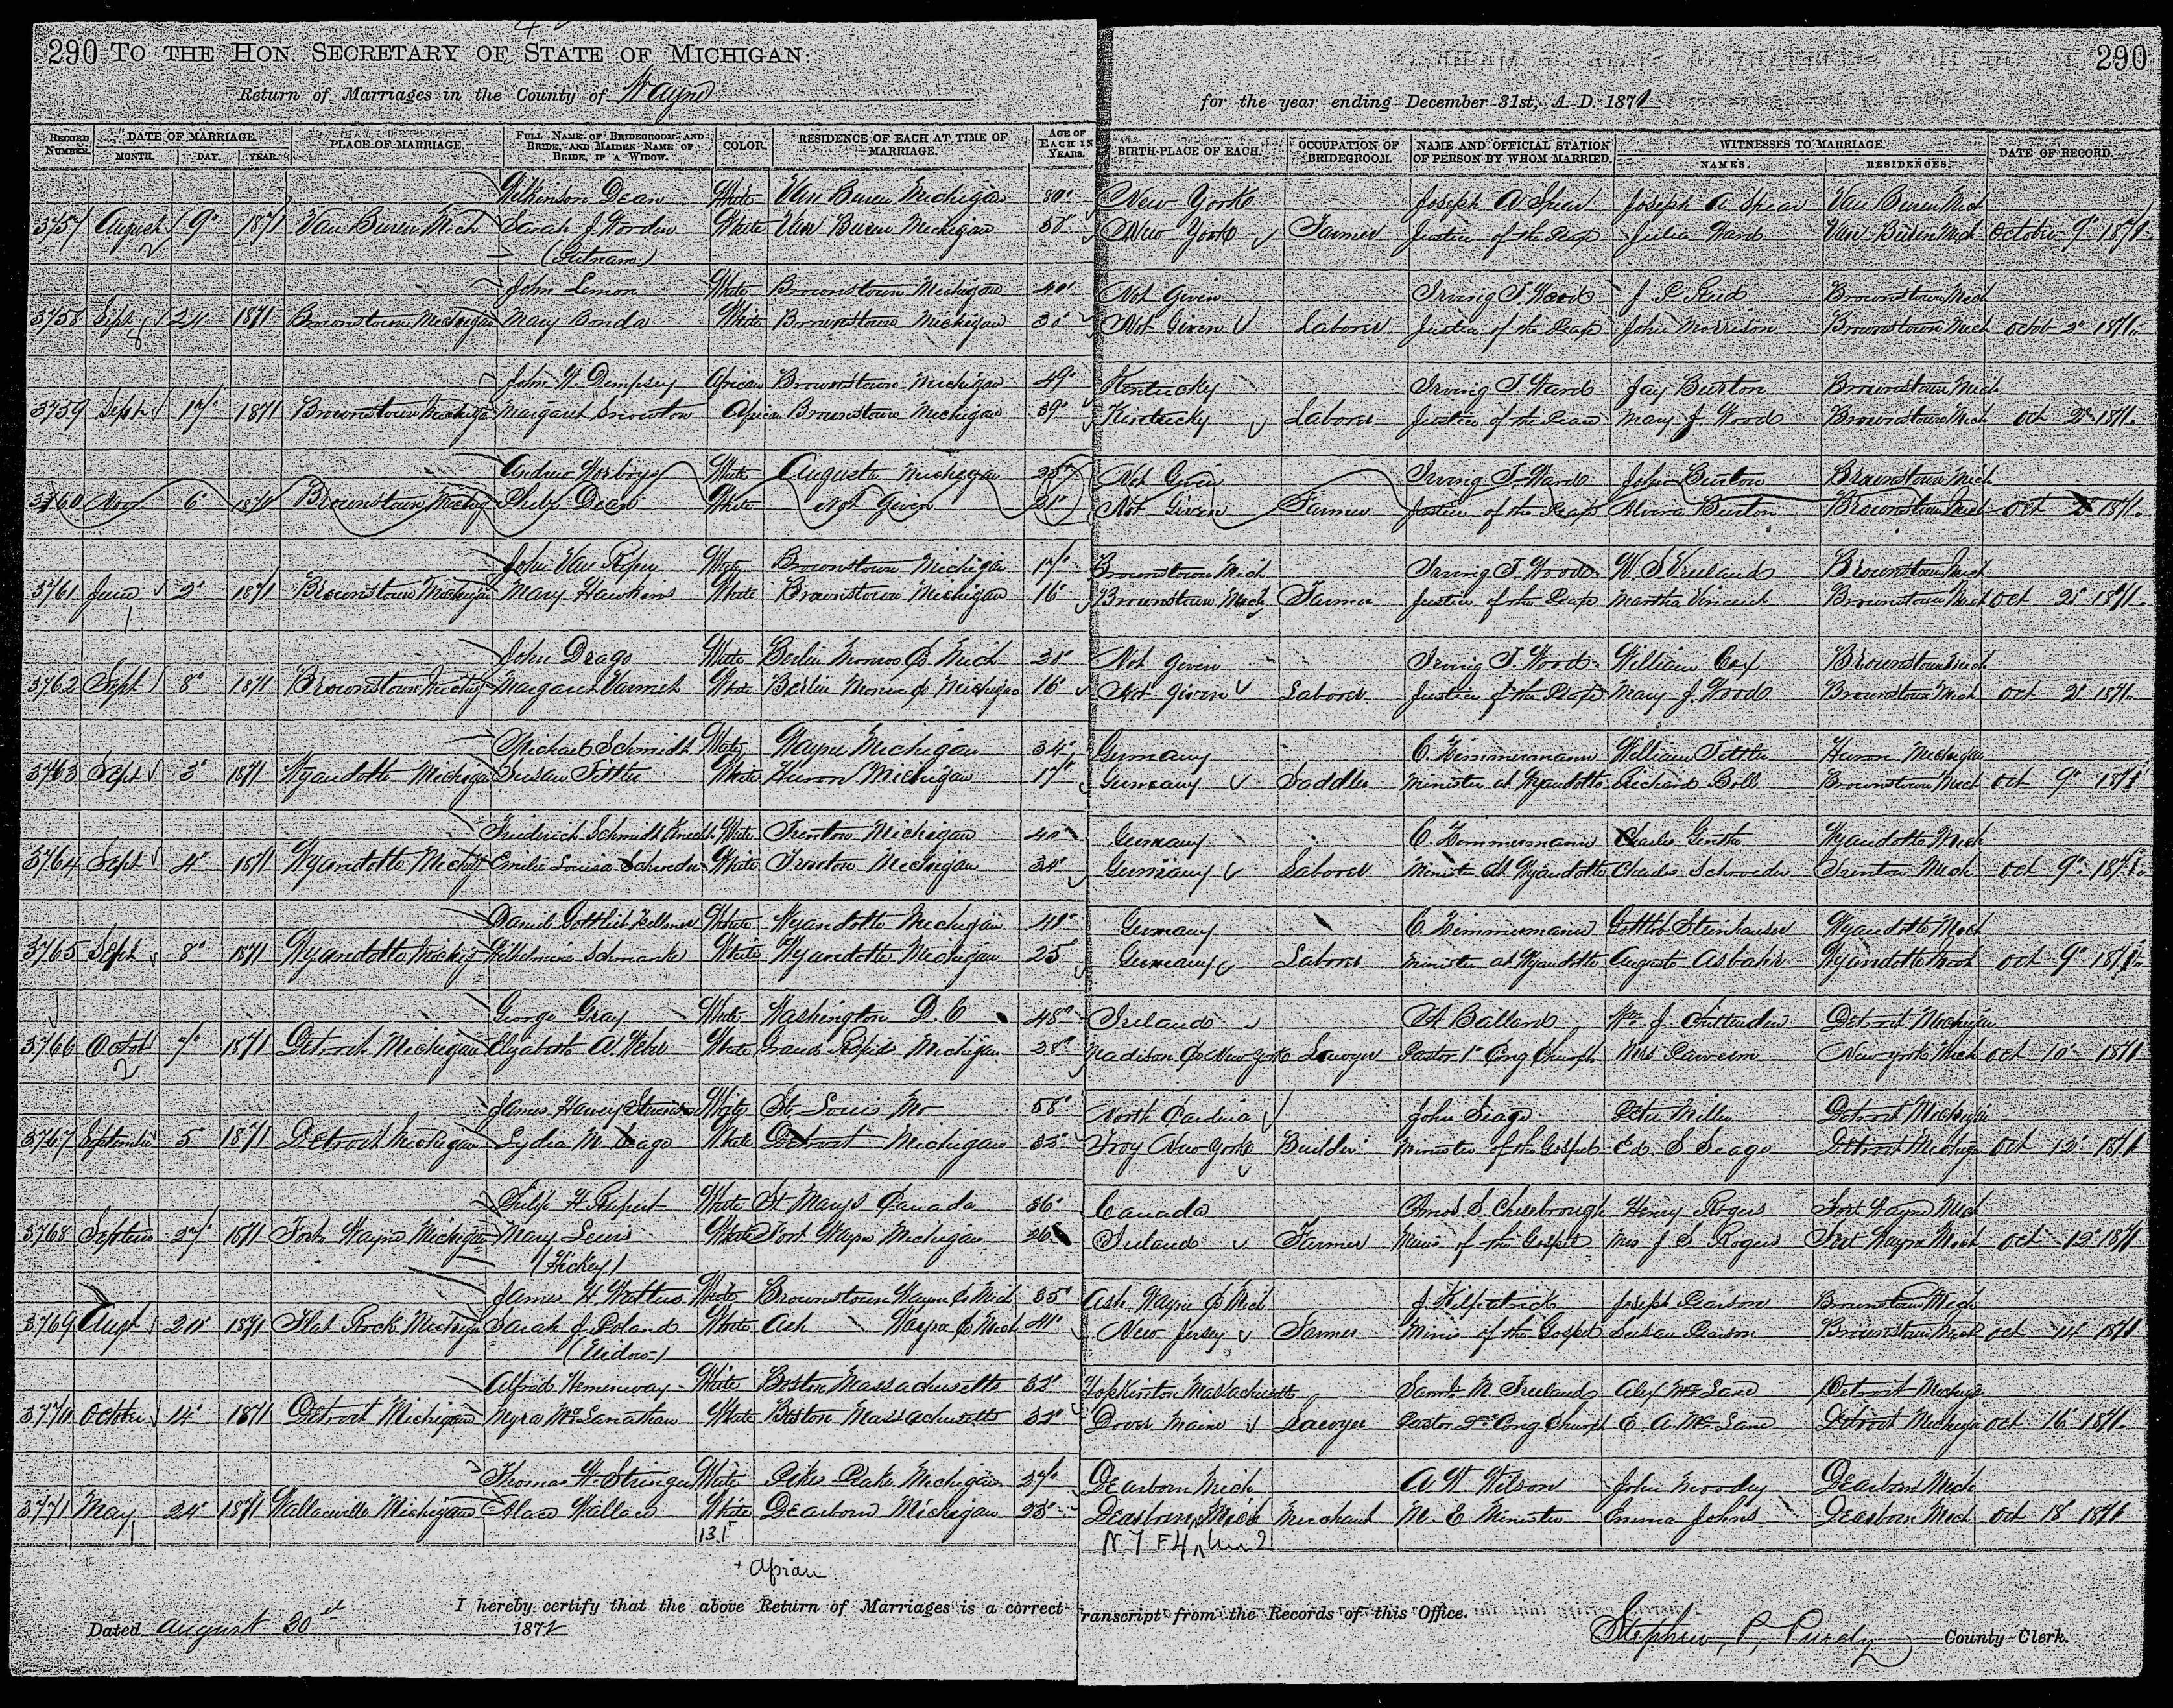 290 TO THE HON. SECRETARY OF STATE OF MICHIGAN: 290
Return of Marriages in the County of Wayne for the year ending December 31st, A. D. 1871
RECORD NUMBER. DATE OF MARRIAGE. MONTH. DAY. YEAR. PLACE OF MARRIAGE. FULL NAME OF BRIDEGROOM AND BRIDE, AND MAIDEN NAME OF BRIDE, IF A WIDOW. COLOR. RESIDENCE OF EACH AT TIME OF MARRIAGE. AGE OF EACH IN YEARS. BIRTH-PLACE OF EACH. OCCUPATION OF BRIDEGROOM. NAME AND OFFICIAL STATION OF PERSON BY WHOM MARRIED. WITNESSES TO MARRIAGE. NAMES. RESIDENCES. DATE OF RECORD.
Wilkinson Dean White Van Buren Michigan New York Joseph A Spear Joseph A Spear Van Buren Mich
3757 August 9 1871 Van Buren Mich Sarah J. Worden White Van Buren Michigan New York Farmer Justice of the Peace Julia Ward Van Buren Mich October 9 1871
2 (Putnam)
John Lemon White Brownstown Michigan 40 Not Given Irving T. Wood Brownstown Mich
3758 Sept 24 1871 Brownstown Michigan Mary Bonda White Brownstown Michigan 30 Not Given Laborer Justice of the Peace John Morrison Brownstown Mich Octob 2 1871
8
John W. Dempsey African Brownstown Michigan 49 Kentucky Irving T Wood Jay Burton Brownstown Mich
3759 Sept 17 1871 Brownstown Michigan Margaret Snowton African Brownstown Michigan 39 Kentucky Laborer Justice of the Peace Mary J. Wood Brownstown Mich Oct 2 1871
Andrew Worboys White Augusta Michigan 25 Not Given Irving T. Wood John Burton Brownstown Mich
3760 Nov 6 1870 Brownstown Michig Dean White Not Given 21 Not Given Farmer Justice of the Peace Alvira Burton Brownstown Mich Oct 2 1871
John Van Riper White Brownstown Michigan 17 Brownstown Mich Irving T. Wood W. S Vreeland Brownstown Mich
3761 June 2 1871 Brownstown Michigan Mary Hawkins White Brownstown Michigan 16 Brownstown Mich Farmer Justice of the Peace Martha Brownstown Mich Oct 2 1871
1
John Drago White Berlin Monroe Co Mich Not Given Irving T. Wood William Cox Brownstown Mich
3762 Sept 8 1871 Brownstown Michig Margaret White Berlin Monroe Co Michigan 16 Not Given Laborer Justice of the Peace Mary J. Wood Brownstown Mich Oct 2 1871
Michael Schmidt White Wayne Michigan 34 Germany C. Zimmermann William Tittle Huron Michigan
3763 Sept 3 1871 Wyandotte Michigan Susan Tittle White Huron Michigan 17 Germany Saddler Minister at Wyandotte Richard Boll Brownstown Mich Oct 9 1871
Friedrich Schmidt Knecht White Trenton Michigan 40 Germany C. Zimmermann Charles Genthe Wyandotte Mich
3764 Sept 4 1871 Wyandotte Michig Emilie Louisa Schroeder White Trenton Michigan Germany Laborer Minister at Wyandotte Charles Schroeder Trenton Mich Oct 9 1871
Daniel Gottlieb White Wyandotte Michigan Germany C. Zimmermann Gottlob Steinhauser Wyandotte Mich
3765 Sept 8 1871 Wyandotte Michig Wilhelmine Schmanke White Wyandotte Michigan 25 Germany Laborer Minister at Wyandotte Auguste Asbahr Wyandotte Mich Oct 9 1871
George Gray White Washington D. C 48 Ireland A Ballard Wm J. Chittenden Detroit Michigan
3766 Octob 7 1871 Detroit Michigan Elizabeth A. Weber White Grand Rapids Michigan 28 Madison Co New York Lawyer Pastor 1st Cong Church Mrs New York Mich Oct 10 1871
2
James Harvey White St. Louis Mo 58 North Carolina John Seage Peter Miller Detroit Michigan
3767 September 5 1871 Detroit Michigan Lydia M. Seage White Detroit Michigan Troy New York Builder Minister of the Gospel Ed. S Seage Detroit Michig Oct 12 1871
Philip H Rupert White St Marys Canada 36 Canada Amos S Chesbrough Henry Rogus Fort Wayne Mich
3768 Septem 27 1871 Fort Wayne Michigan Mary Lewis White Fort Wayne Michigan 26 Ireland Farmer Minis of the Gospel Mrs J. S Rogus Fort Wayne Mich Oct 12 1871
(Hickey)
James H. Watters White Brownstown Wayne Co Mich 35 Ash Wayne Co Mich J. Kilpatrick Joseph Pearson Brownstown Mich
3769 Augt 20 1871 Flat Rock Michigan Sarah J. Poland White Ash Wayne Co Mich 41 New Jersey Farmer Minis of the Gospel Susan Pearson Brownstown Mich Oct 14 1871
(Widow)
Alfred Hemenway White Boston Massachusetts 32 Hopkinton Massachusetts Saml M. Freeland Alex McLane Detroit Michiga
3770 October 14 1871 Detroit Michigan Myra McLanathan White Boston Massachusetts 32 Dover Maine Lawyer Pastor 2nd Cong Church E. A. McLane Detroit Michiga Oct 16 1871
Thomas W. Stringer White Pikes Peak Michigan 27 Dearborn Mich A. W. Wilson John Moody Dearborn Mich
3771 May 24 1871 Wallaceville Michigan Wallace White Dearborn Michigan 23 Dearborn Mich Merchant M. E Minister Emma Johns Dearborn Mich Oct 18 1871
1 131 N 7 F 4
+ African
I hereby certify that the above Return of Marriages is a correct transcript from the Records of this Office.
Dated August 30th 1872 Stephen P. Purdy County Clerk.